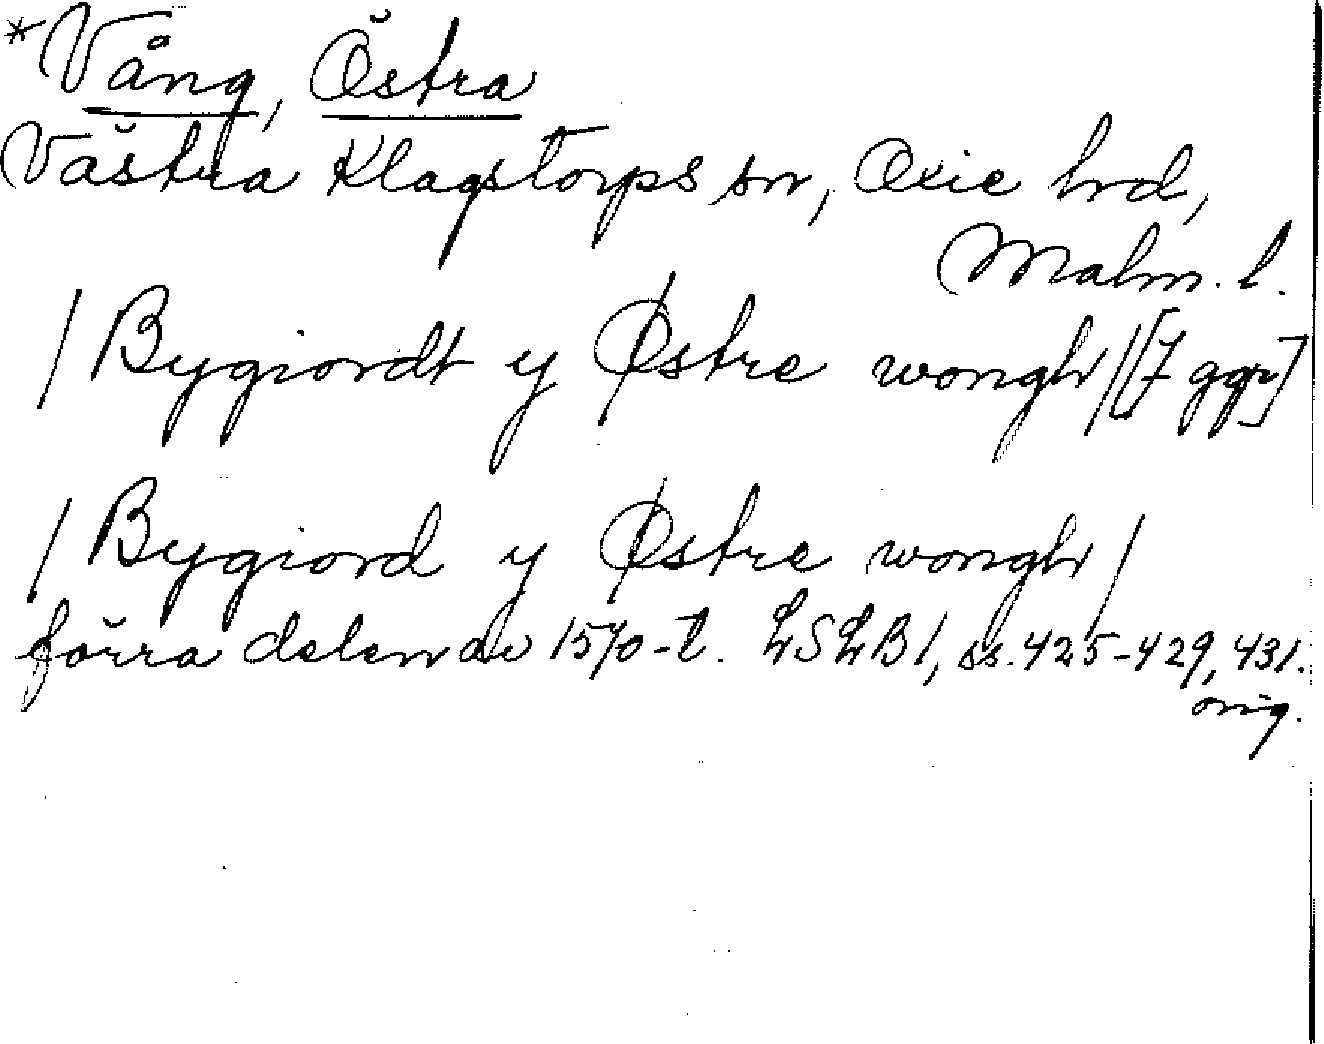 *Vång, Östra
Västra Klagstorps sn, Oxie hd,
Malm. l.
/ Bygiordt y Østre wongh / [7 ggr]
/ Bygiord y Østre wongh /
förra delen av 1570-t. LSLB 1, ss. 425-429, 431.
orig.